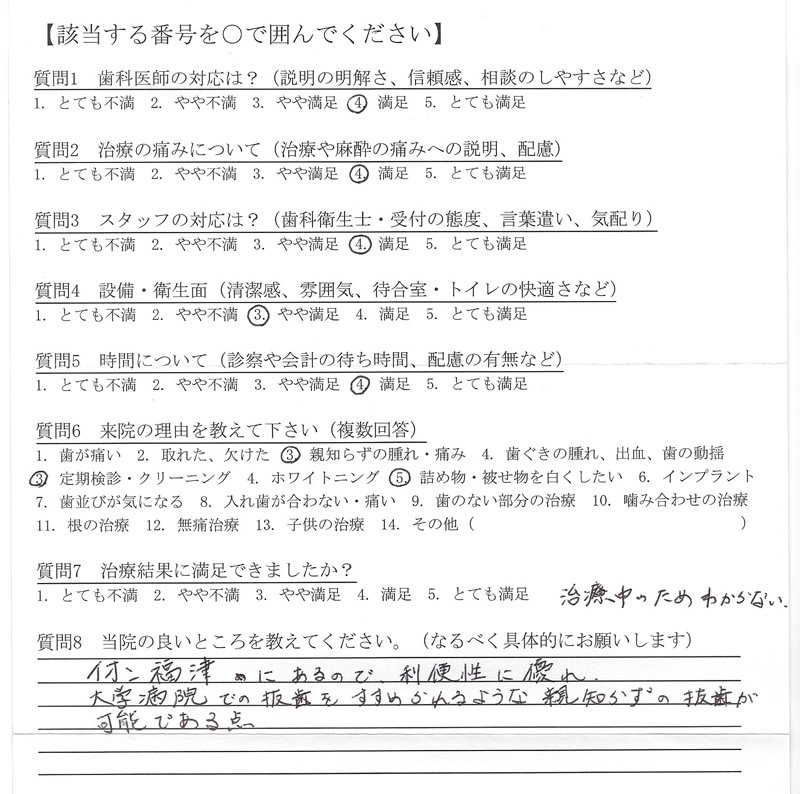 【該当する番号を○で囲んでください】
質問1 歯科医師の対応は？（説明の明解さ、信頼感、相談のしやすさなど）
1. とても不満 2. やや不満 3. やや満足 ④ 満足 5. とても満足
質問2 治療の痛みについて（治療や麻酔の痛みへの説明、配慮）
1. とても不満 2. やや不満 3. やや満足 ④ 満足 5. とても満足
質問3 スタッフの対応は？（歯科衛生士・受付の態度、言葉遣い、気配り）
1. とても不満 2. やや不満 3. やや満足 ④ 満足 5. とても満足
質問4 設備・衛生面（清潔感、雰囲気、待合室・トイレの快適さなど）
1. とても不満 2. やや不満 ③ やや満足 4. 満足 5. とても満足
質問5 時間について（診察や会計の待ち時間、配慮の有無など）
1. とても不満 2. やや不満 3. やや満足 ④ 満足 5. とても満足
質問6 来院の理由を教えて下さい（複数回答）
1. 歯が痛い 2. 取れた、欠けた ③ 親知らずの腫れ・痛み 4. 歯ぐきの腫れ、出血、歯の動揺
③ 定期検診・クリーニング 4. ホワイトニング ⑤ 詰め物・被せ物を白くしたい 6. インプラント
7. 歯並びが気になる 8. 入れ歯が合わない・痛い 9. 歯のない部分の治療 10. 噛み合わせの治療
11. 根の治療 12. 無痛治療 13. 子供の治療 14. その他（ ）
質問7 治療結果に満足できましたか？
1. とても不満 2. やや不満 3. やや満足 4. 満足 5. とても満足 治療中のためわからない.
質問8 当院の良いところを教えてください。（なるべく具体的にお願いします）
イオン福津 にあるので、利便性に優れ、
大学病院での抜歯をすすめられるような親知らずの抜歯が
可能である点。